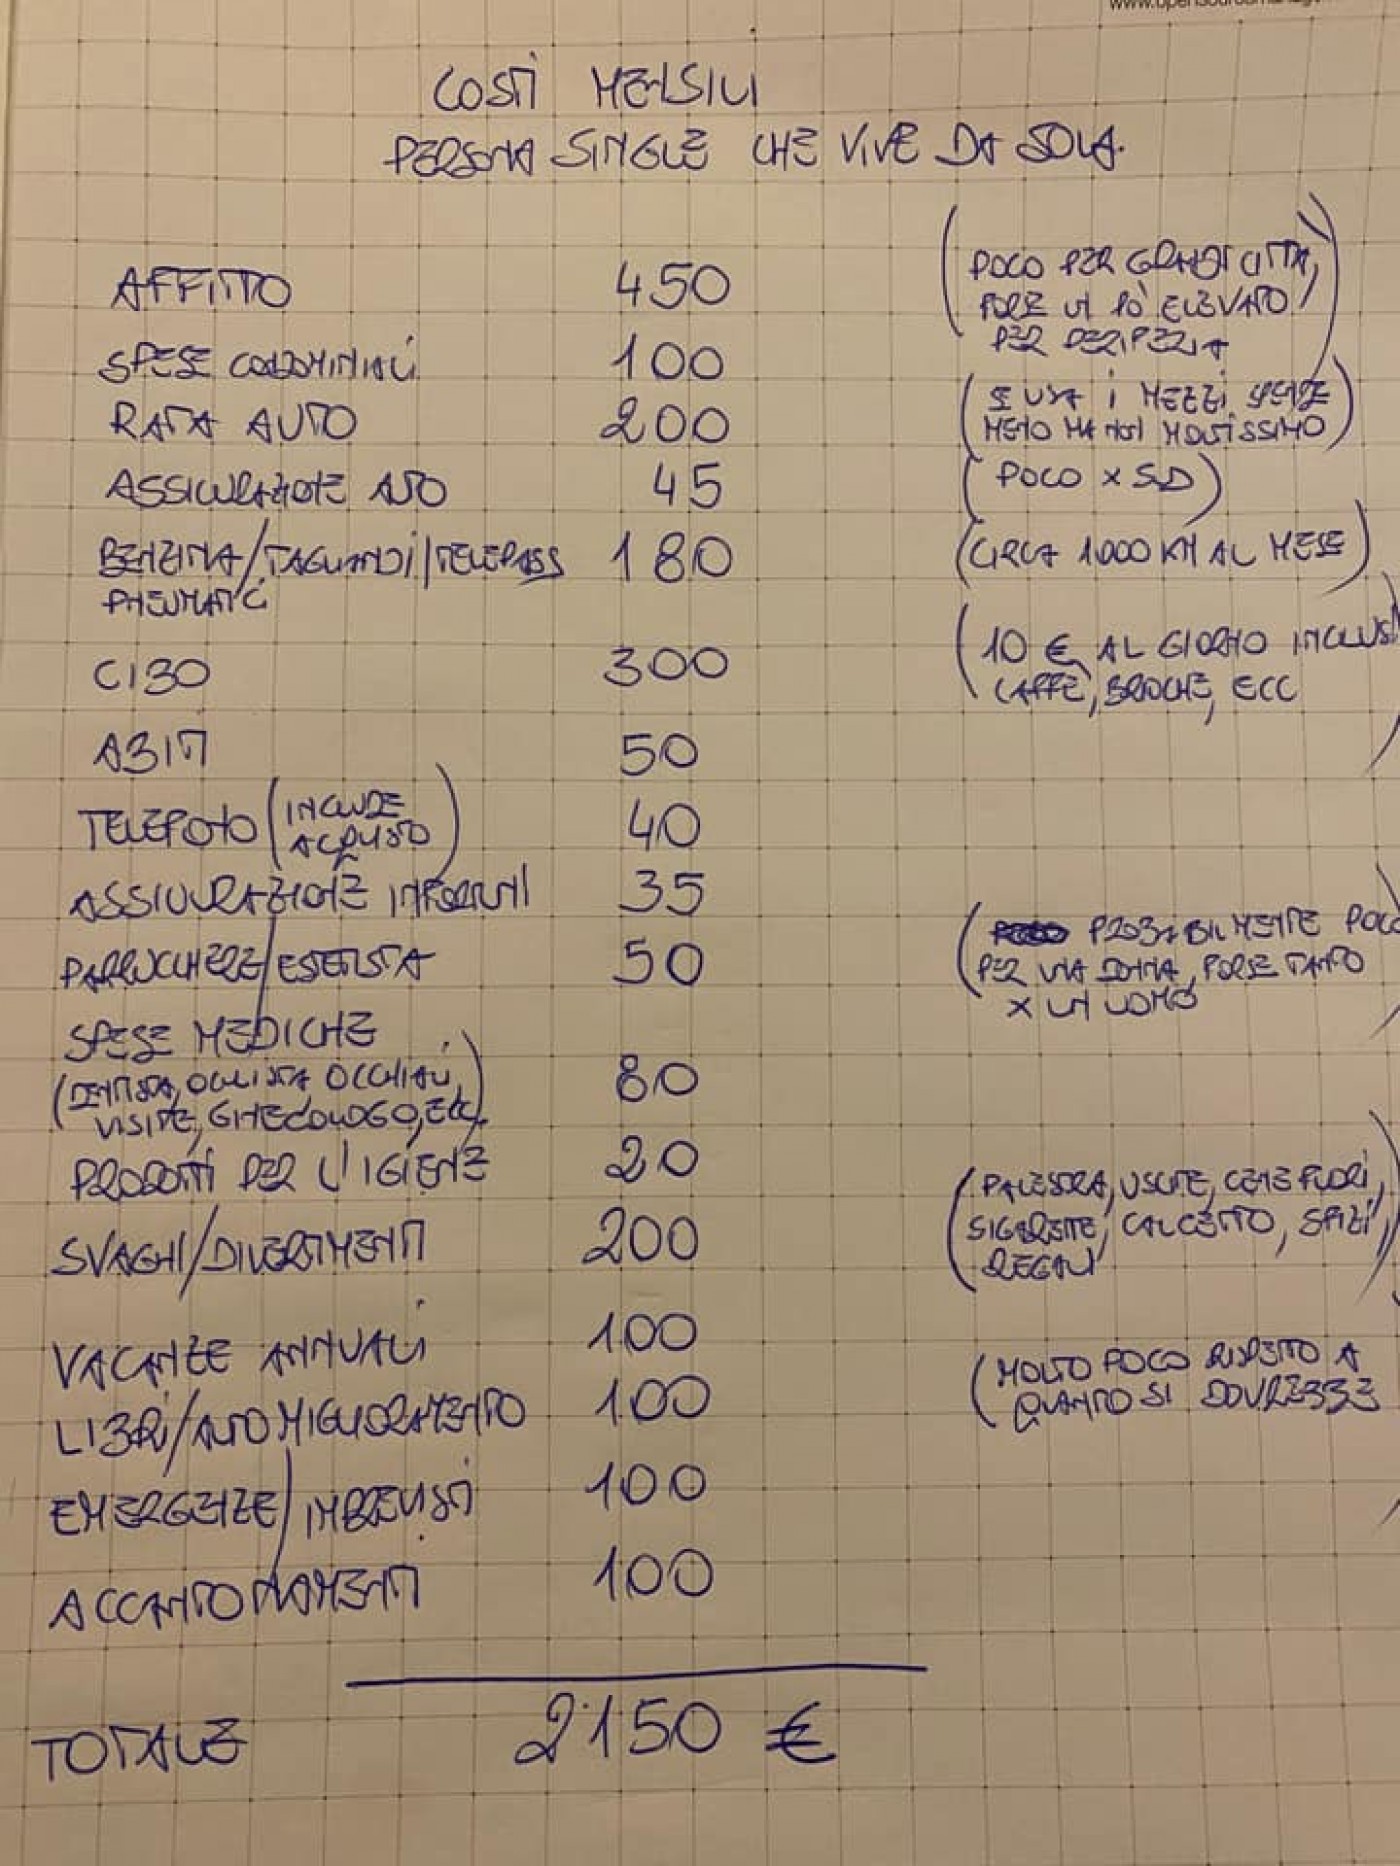 COSTI MENSILI
PERSONA SINGLE CHE VIVE DA SOLA.
AFFITTO 450 (POCO PER GRANDI CITTÀ,
FORSE UN PÒ ELEVATO
PER PERIFERIA)
SPESE CONDOMINIALI 100
RATA AUTO 200 (SE USA I MEZZI SPENDE
MENO MA NON MOLTISSIMO)
ASSICURAZIONE AUTO 45 (POCO X SUD)
BENZINA/TAGLIANDI/TELEPASS 180 (CIRCA 1000 KM AL MESE)
PNEUMATICI
CIBO 300 (10 € AL GIORNO INCLUSI
CAFFÈ, BRIOCHE, ECC)
ABITI 50
TELEFONO (INCLUDE 40
ACQUISTO)
ASSICURAZIONE INFORTUNI 35
PARRUCCHIERE/ESTETISTA 50 (PROBABILMENTE POCO
PER UNA DONNA, FORSE TANTO
X UN UOMO)
SPESE MEDICHE
(DENTISTA, OCULISTA OCCHIALI, 80
VISITE, GINECOLOGO, ECC)
PRODOTTI PER L'IGIENE 20
SVAGHI/DIVERTIMENTI 200 (PALESTRA, USCITE, CENE FUORI,
SIGARETTE, CALCETTO, SFIZI,
REGALI)
VACANZE ANNUALI 100
LIBRI/AUTOMIGLIORAMENTO 100 (MOLTO POCO RISPETTO A
QUANTO SI DOVREBBE
EMERGENZE/IMPREVISTI 100
ACCANTONAMENTI 100
TOTALE 2150 €